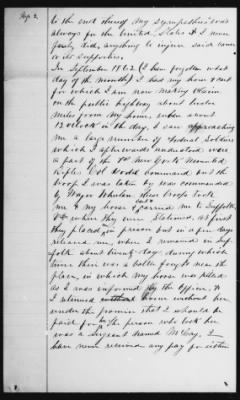 Dep. 2.
to the end thereof my sympathies was
always for the United States & I never
freely did, anything to injure said cause
or its supporters.
In September 1862 (I have forgotten what
day of the month) I had my horse & cart
for which I am now making claim
on the public highway about twelve
miles from my home, when about
12 o'clock in the day, I saw approaching
me a large number of Federal Soldiers
which I afterwards understood were
a part of the New York Mounted
Rifles Col Dodd command but the
troop I was taken by was commanded
by Major Wheelan these troops took
me & my horse & cart & carried me to Suffolk
Va where they were stationed, at first
they placed me in prison but in a few days
released me, when I remained in Suf
folk about twenty days during which
time there was a battle fought near the
place, in which my horse was killed
as I was informed by the officers, &
I returned home without her
under the promise that I should be
paid for her. The person who took her
was a Sergeant named McCoy, I
have never received any pay for either